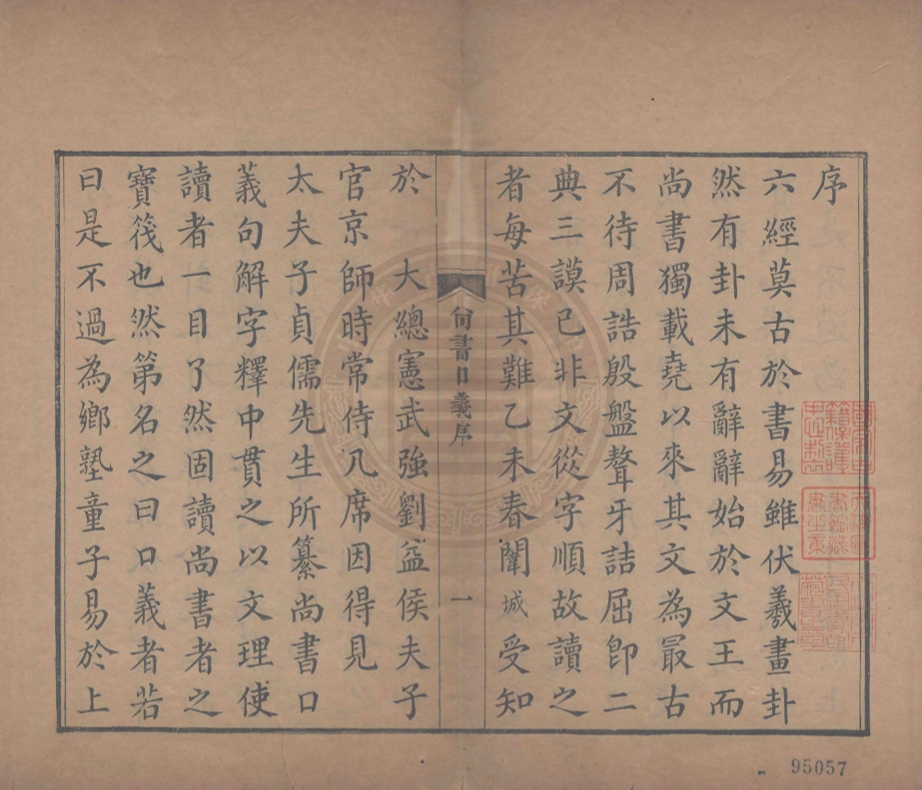 序
六經莫古於書易雖伏羲畫卦
然有卦未有辭辭始於文王而
尚書獨載堯以來其文為最古
不待周誥殷盤聱牙詰屈即二
典三謨已非文從字順故讀之
者每苦其難乙未春闈城受知
尚書口義序
一
於 大總憲武強劉益侯夫子
官京師時常侍几席因得見
太夫子貞儒先生所纂尚書口
義句解字釋中貫之以文理使
讀者一目了然固讀尚書者之
寶筏也然第名之曰口義者若
曰是不過為鄉塾童子易於上
95057